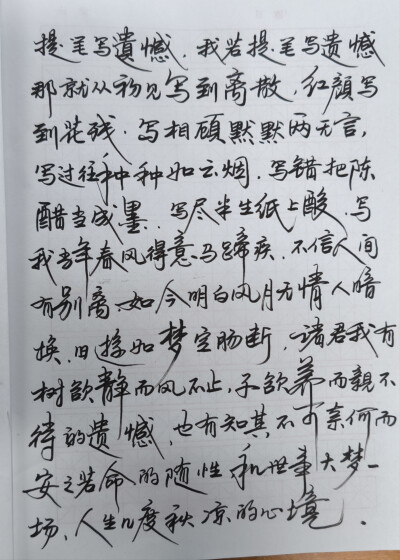 提笔写遺憾，我若提笔写遗憾
那就从初见写到离散，红顔写
到花残．写相顾默默两无言，
写过往种种如云烟．写错把陈
醋当成墨．写尽半生纸上酸．写
我当年春风得意马蹄疾．不信人间
有别离．如今明白风月无情人暗
换．旧游如梦空肠断，诸君我有
树欲静而风不止，子欲养而親不
待的遗憾，也有知其不可奈何而
安之若命的随性和世事大梦一
场、人生几度秋凉的心境．